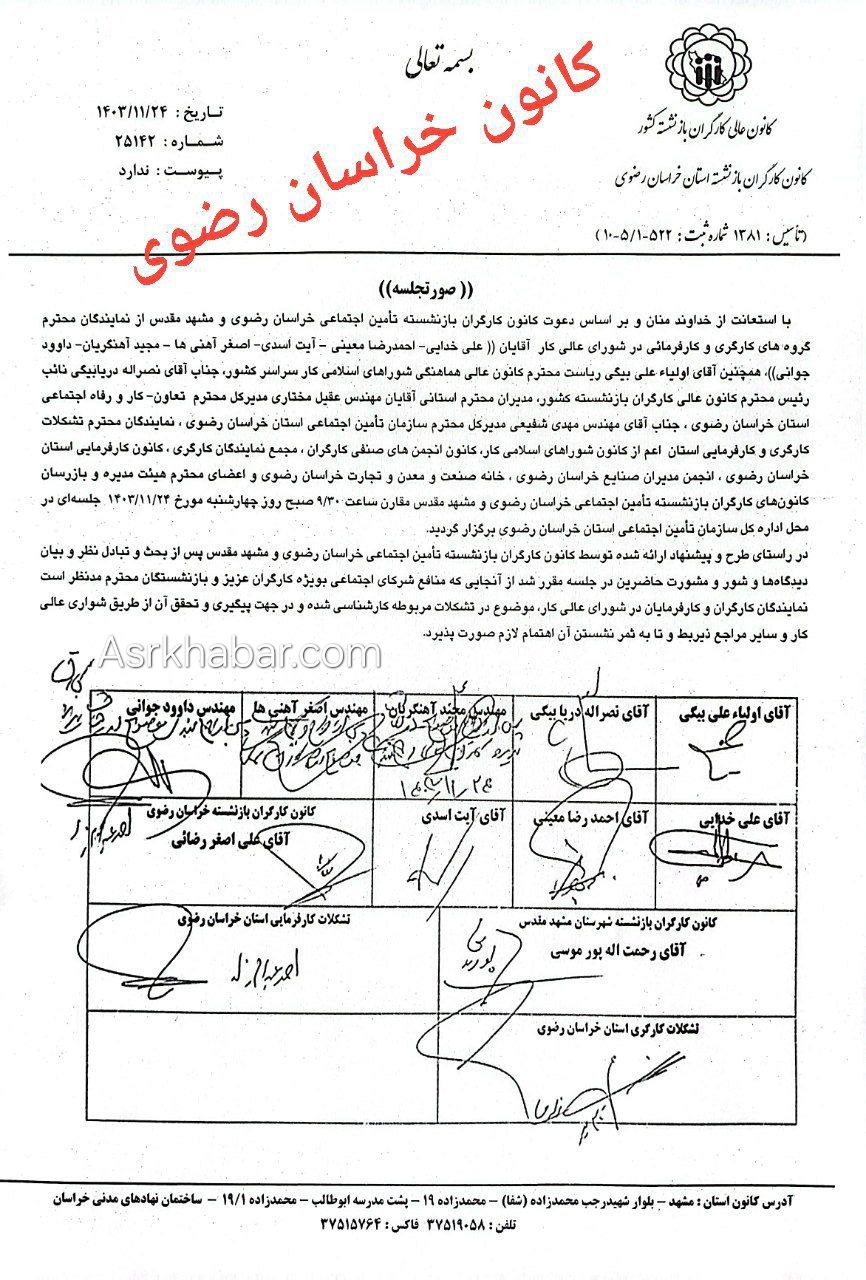 بسمه تعالی
کانون عالی کارگران بازنشسته کشور
کانون کارگران بازنشسته استان خراسان رضوی
(تأسیس : ۱۳۸۱ شماره ثبت : ۵۲۲-۱۰-۵/۱)
تاریخ : ۱۴۰۳/۱۱/۲۴
شماره : ۲۵۱۴۲
پیوست : ندارد
کانون خراسان رضوی
(( صورتجلسه))
با استعانت از خداوند منان و بر اساس دعوت کانون کارگران بازنشسته تأمین اجتماعی خراسان رضوی و مشهد مقدس از نمایندگان محترم
گروه های کارگری و کارفرمائی در شورای عالی کار آقایان (( علی خدایی- احمدرضا معینی – آیت اسدی- اصغر آهنی ها – مجید آهنگریان- داوود
جوانی))، همچنین آقای اولیاء علی بیگی ریاست محترم کانون عالی هماهنگی شوراهای اسلامی کار سراسر کشور، جناب آقای نصراله دریابیگی نائب
رئیس محترم کانون عالی کارگران بازنشسته کشور، مدیران محترم استانی آقایان مهندس عقیل مختاری مدیرکل محترم تعاون- کار و رفاه اجتماعی
استان خراسان رضوی ، جناب آقای مهندس مهدی شفیعی مدیرکل محترم سازمان تأمین اجتماعی استان خراسان رضوی ، نمایندگان محترم تشکلات
کارگری و کارفرمایی استان اعم از کانون شوراهای اسلامی کار، کانون انجمن های صنفی کارگران ، مجمع نمایندگان کارگری ، کانون کارفرمایی استان
خراسان رضوی ، انجمن مدیران صنایع خراسان رضوی ، خانه صنعت و معدن و تجارت خراسان رضوی و اعضای محترم هیئت مدیره و بازرسان
کانون‌های کارگران بازنشسته تأمین اجتماعی خراسان رضوی و مشهد مقدس مقارن ساعت ۹/۳۰ صبح روز چهارشنبه مورخ ۱۴۰۳/۱۱/۲۴ جلسه‌ای در
محل اداره کل سازمان تأمین اجتماعی استان خراسان رضوی برگزار گردید.
در راستای طرح و پیشنهاد ارائه شده توسط کانون کارگران بازنشسته تأمین اجتماعی خراسان رضوی و مشهد مقدس پس از بحث و تبادل نظر و بیان
دیدگاه‌ها و شور و مشورت حاضرین در جلسه مقرر شد از آنجایی که منافع شرکای اجتماعی بویژه کارگران عزیز و بازنشستگان محترم مدنظر است
نمایندگان کارگران و کارفرمایان در شورای عالی کار، موضوع در تشکلات مربوطه کارشناسی شده و در جهت پیگیری و تحقق آن از طریق شواری عالی
کار و سایر مراجع ذیربط و تا به ثمر نشستن آن اهتمام لازم صورت پذیرد.
Asrkhabar.com
آقای اولیاء علی بیگی
آقای نصراله دریا بیگی
مهندس مجید آهنگریان
مهندس اصغر آهنی ها
مهندس داوود جوانی
آقای علی خدایی
آقای احمد رضا معینی
آقای آیت اسدی
کانون کارگران بازنشسته خراسان رضوی
آقای علی اصغر رضائی
کانون کارگران بازنشسته شهرستان مشهد مقدس
آقای رحمت اله پور موسی
تشکلات کارفرمایی استان خراسان رضوی
تشکلات کارگری استان خراسان رضوی
آدرس کانون استان : مشهد – بلوار شهیدرجب محمدزاده (شفا) – محمدزاده ۱۹ – پشت مدرسه ابوطالب – محمدزاده ۱۹/۱ – ساختمان نهادهای مدنی خراسان
تلفن : ۳۷۵۱۹۰۵۸ فاکس : ۳۷۵۱۵۷۶۴